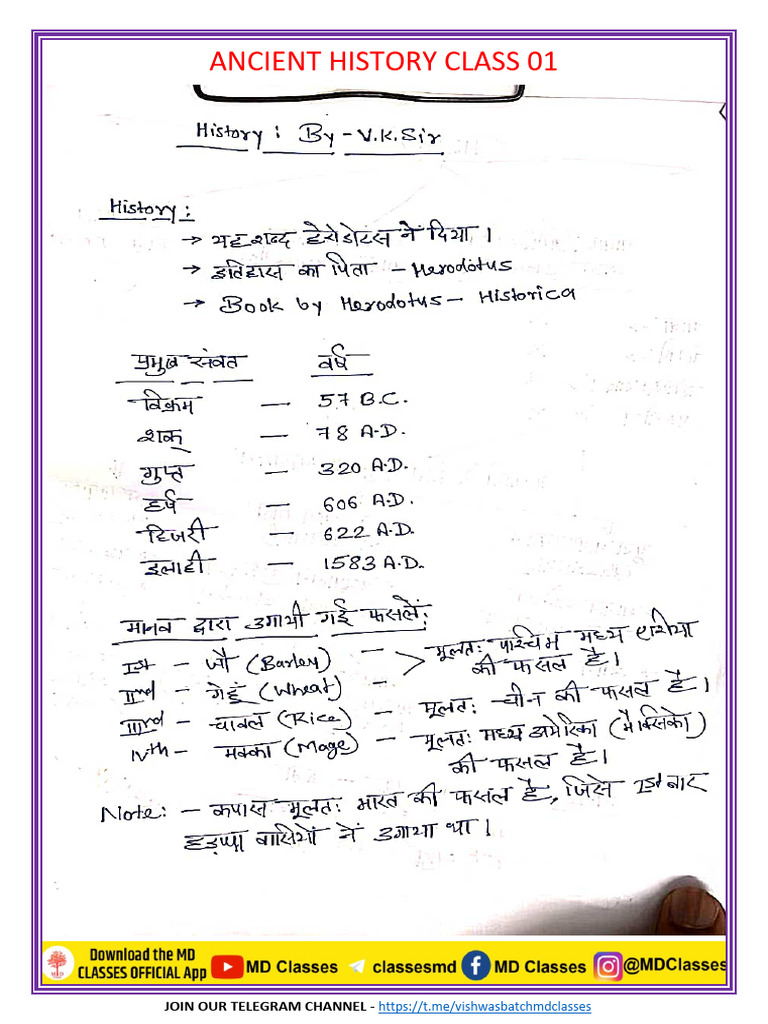 ANCIENT HISTORY CLASS 01
History : By - V.K.Sir
History :
→ यह शब्द हेरोडोटस ने दिया ।
→ इतिहास का पिता - Herodotus
→ Book by Herodotus - Historica
प्रमुख संवत वर्ष
विक्रम — 57 B.C.
शक् — 78 A.D.
गुप्त — 320 A.D.
हर्ष — 606 A.D.
हिजरी — 622 A.D.
इलाही — 1583 A.D.
मानव द्वारा उगायी गई फसलें:
Ist - जौ (Barley) - > मूलतः पश्चिम मध्य एशिया
IInd - गेहूं (Wheat) - की फसल है।
IIIrd - चावल (Rice) - मूलतः चीन की फसल है।
IVth - मक्का (Mage) - मूलतः मध्य अमेरिका (मैक्सिको)
की फसल है।
Note: - कपास मूलतः भारत की फसल है, जिसे Ist बार
हड़प्पा वासियों ने उगाया था ।
Download the MD
CLASSES OFFICIAL App
MD Classes
classesmd
MD Classes
@MDClasses
JOIN OUR TELEGRAM CHANNEL - https://t.me/vishwasbatchmdclasses